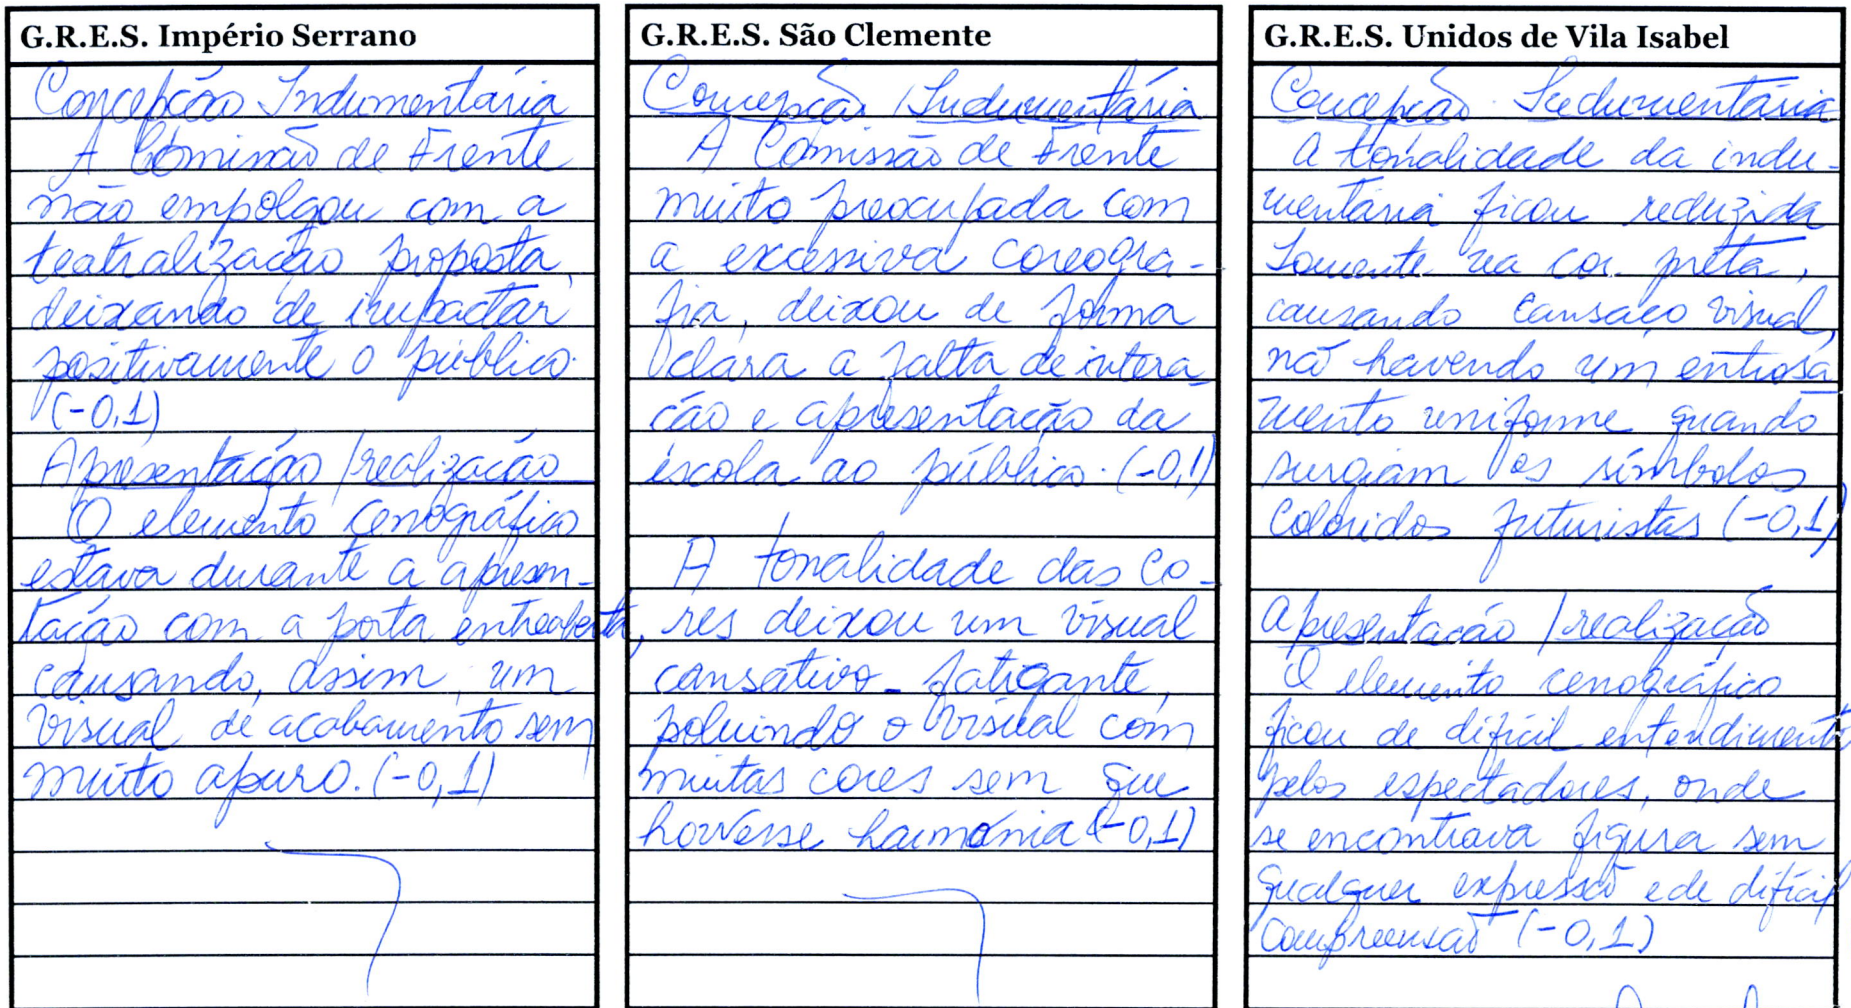 G.R.E.S. Império Serrano
Concepção Indumentária
A Comissão de Frente
não empolgou com a
teatralização proposta,
deixando de impactar
positivamente o público.
(-0,1)
Apresentação/realização
O elemento cenográfico
estava durante a apresen-
tação com a porta entreaberta,
causando, assim, um
visual de acabamento sem
muito apuro. (-0,1)
G.R.E.S. São Clemente
Concepção/Indumentária
A Comissão de Frente
muito preocupada com
a excessiva coreogra-
fia, deixou de forma
clara a falta de intera
ção e apresentação da
escola ao público. (-0,1)
A tonalidade das co-
res deixou um visual
cansativo-fatigante,
poluindo o visual com
muitas cores sem que
houvesse harmonia (-0,1)
G.R.E.S. Unidos de Vila Isabel
Concepção Indumentária
A tonalidade da indu-
mentária ficou reduzida
somente na cor preta,
causando cansaço visual,
não havendo um entrosa
mento uniforme quando
surgiam os símbolos
coloridos futuristas (-0,1)
Apresentação/realização
O elemento cenográfico
ficou de difícil entendimento
pelos espectadores, onde
se encontrava figura sem
qualquer expressão e de difícil
compreensão (-0,1)